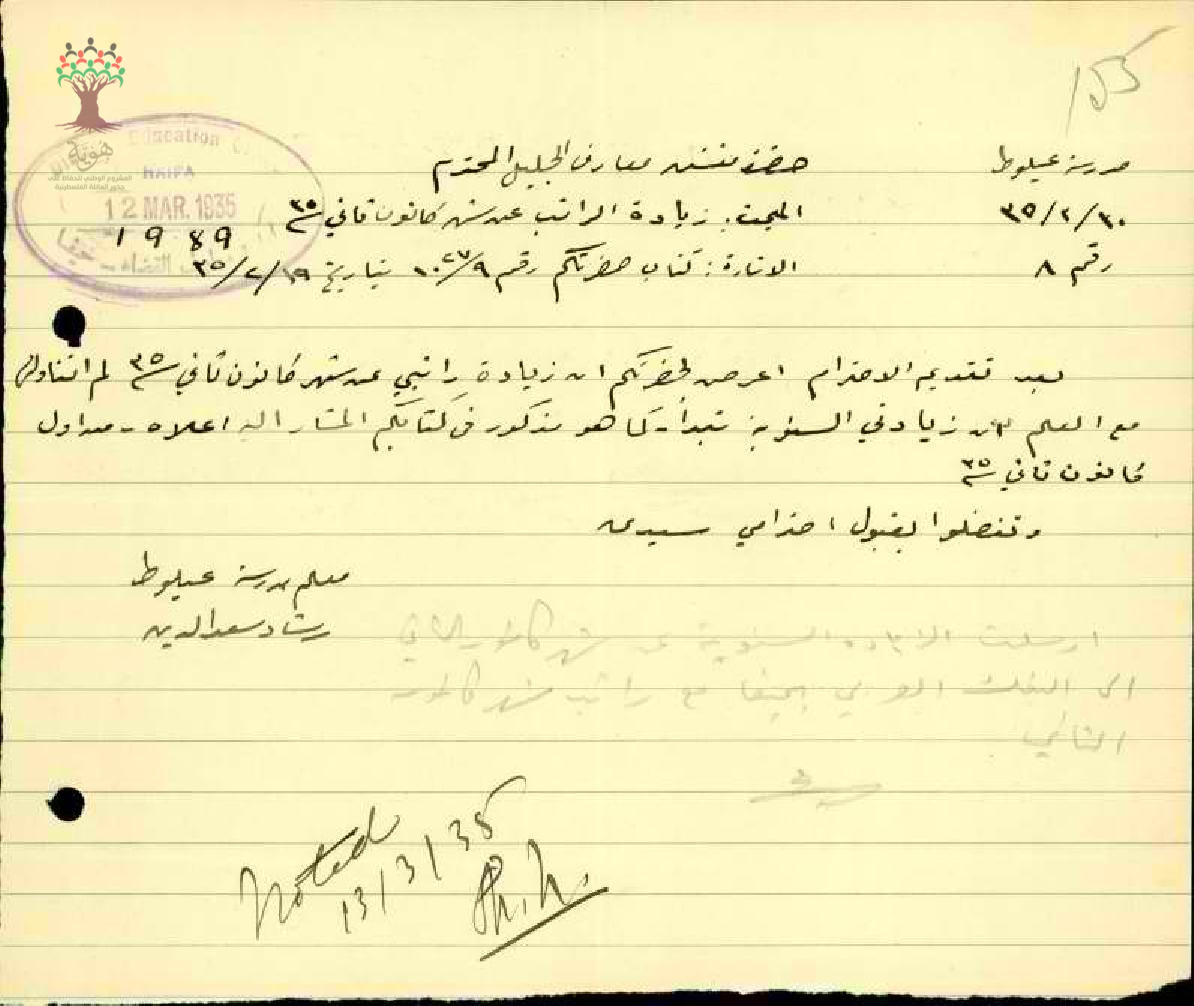 155
مدرسة عيلوط
٣٥/٢/٢٠
رقم ٨
حضرة مفتش معارف الجليل المحترم
المبحث: زيادة الراتب عن شهر كانون ثاني ٣٥
الاشارة: كتاب حضرتكم رقم ١٠٢٧/٩ بتاريخ ٣٥/٢/١٩
Education
HAIFA
12 MAR. 1935
1989
هوية
المشروع الوطني للحفاظ على
جذور العائلة الفلسطينية
بعد تقديم الاحترام اعرض لحضرتكم ان زيادة راتبي عن شهر كانون ثاني ٣٥ لم اتناولها
مع العلم ان زيادتي السنوية تبدأ - كما هو مذكور في كتابكم المشار اليه اعلاه - من اول
كانون ثاني ٣٥
وتفضلوا بقبول احترامي سيدي
معلم مدرسة عيلوط
رشاد سعد الدين
ارسلت الزيادة السنوية عن شهر كانون الثاني
الى البنك العربي بحيفا مع راتب شهر كانون
الثاني
Noted
13/3/35